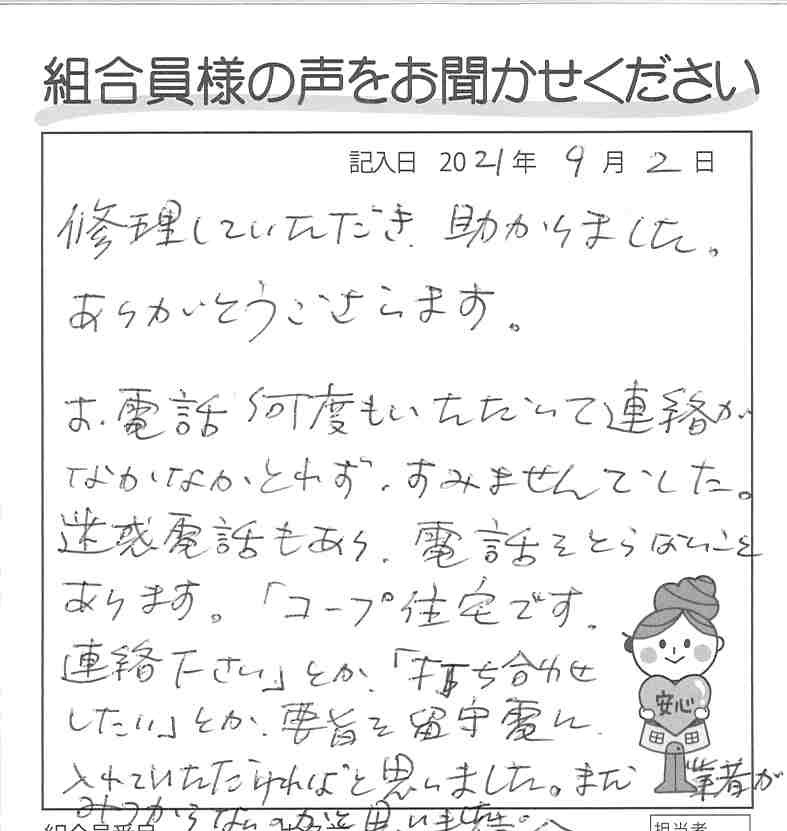 組合員様の声をお聞かせください
記入日 2021年 9月2日
修理していただき、助かりました。
ありがとうございます。
お電話何度もいただいて連絡が
なかなかとれず、すみませんでした。
迷惑電話もあり、電話をとらないことも
あります。「コープ住宅です。
連絡下さい」とか、「打ち合わせ
したい」とか、要旨を留守電に
入れていただければと思いました。まだ 業者が
みつからないのかと思いました
安心
組合員番号
担当者